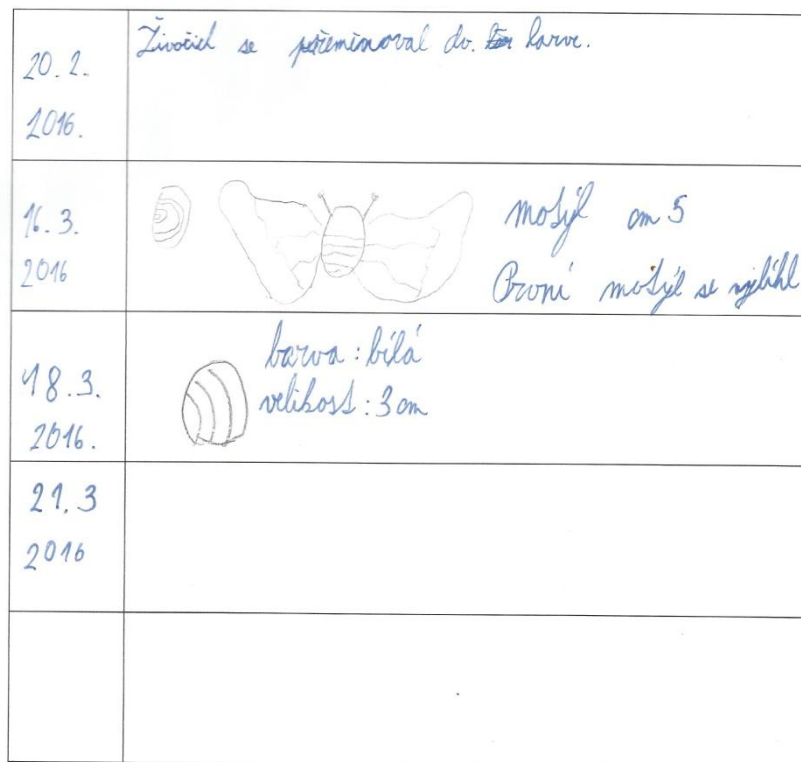 20. 2.
2016.
Živočich se přeměnoval do. larve.
16. 3.
2016
motýl cm 5
První motýl se vylíhl
18. 3.
2016.
barva : bílá
velikost : 3 cm
21. 3
2016